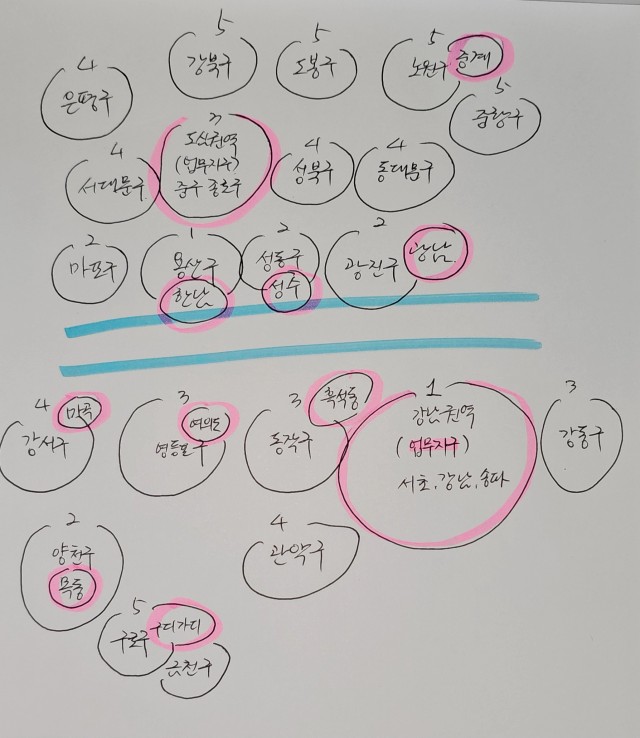 5
강북구
5
도봉구
5
노원구
중계
4
은평구
5
중랑구
4
서대문구
3
도심권역
(업무지구)
중구 종로구
4
성북구
4
동대문구
2
마포구
1
용산구
한남
2
성동구
성수
2
광진구
광남
4
마곡
강서구
3
여의도
영등포구
3
흑석동
동작구
1
강남권역
(업무지구)
서초, 강남, 송파
3
강동구
2
양천구
목동
4
관악구
5
구로구
구디가디
금천구